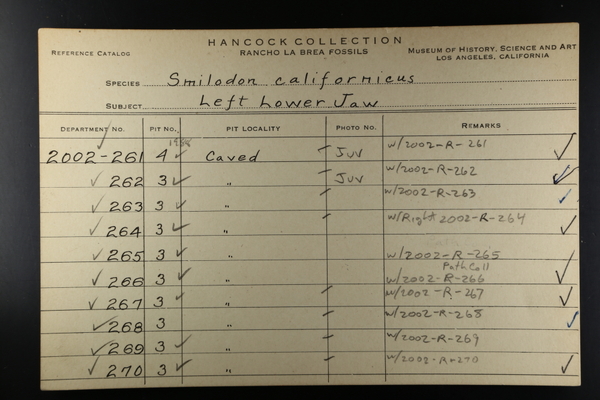 HANCOCK COLLECTION
REFERENCE CATALOG RANCHO LA BREA FOSSILS MUSEUM OF HISTORY, SCIENCE AND ART
LOS ANGELES, CALIFORNIA
SPECIES Smilodon californicus
SUBJECT Left Lower Jaw
DEPARTMENT NO. PIT NO. PIT LOCALITY PHOTO NO. REMARKS
2002-261 4 Caved Juv w/2002-R-261
262 3 " Juv w/2002-R-262
263 3 " w/2002-R-263
264 3 " w/Right 2002-R-264
265 3 " w/2002-R-265
Path Coll
266 3 " w/2002-R-266
267 3 " w/2002-R-267
268 3 " w/2002-R-268
269 3 " w/2002-R-269
270 3 " w/2002-R-270